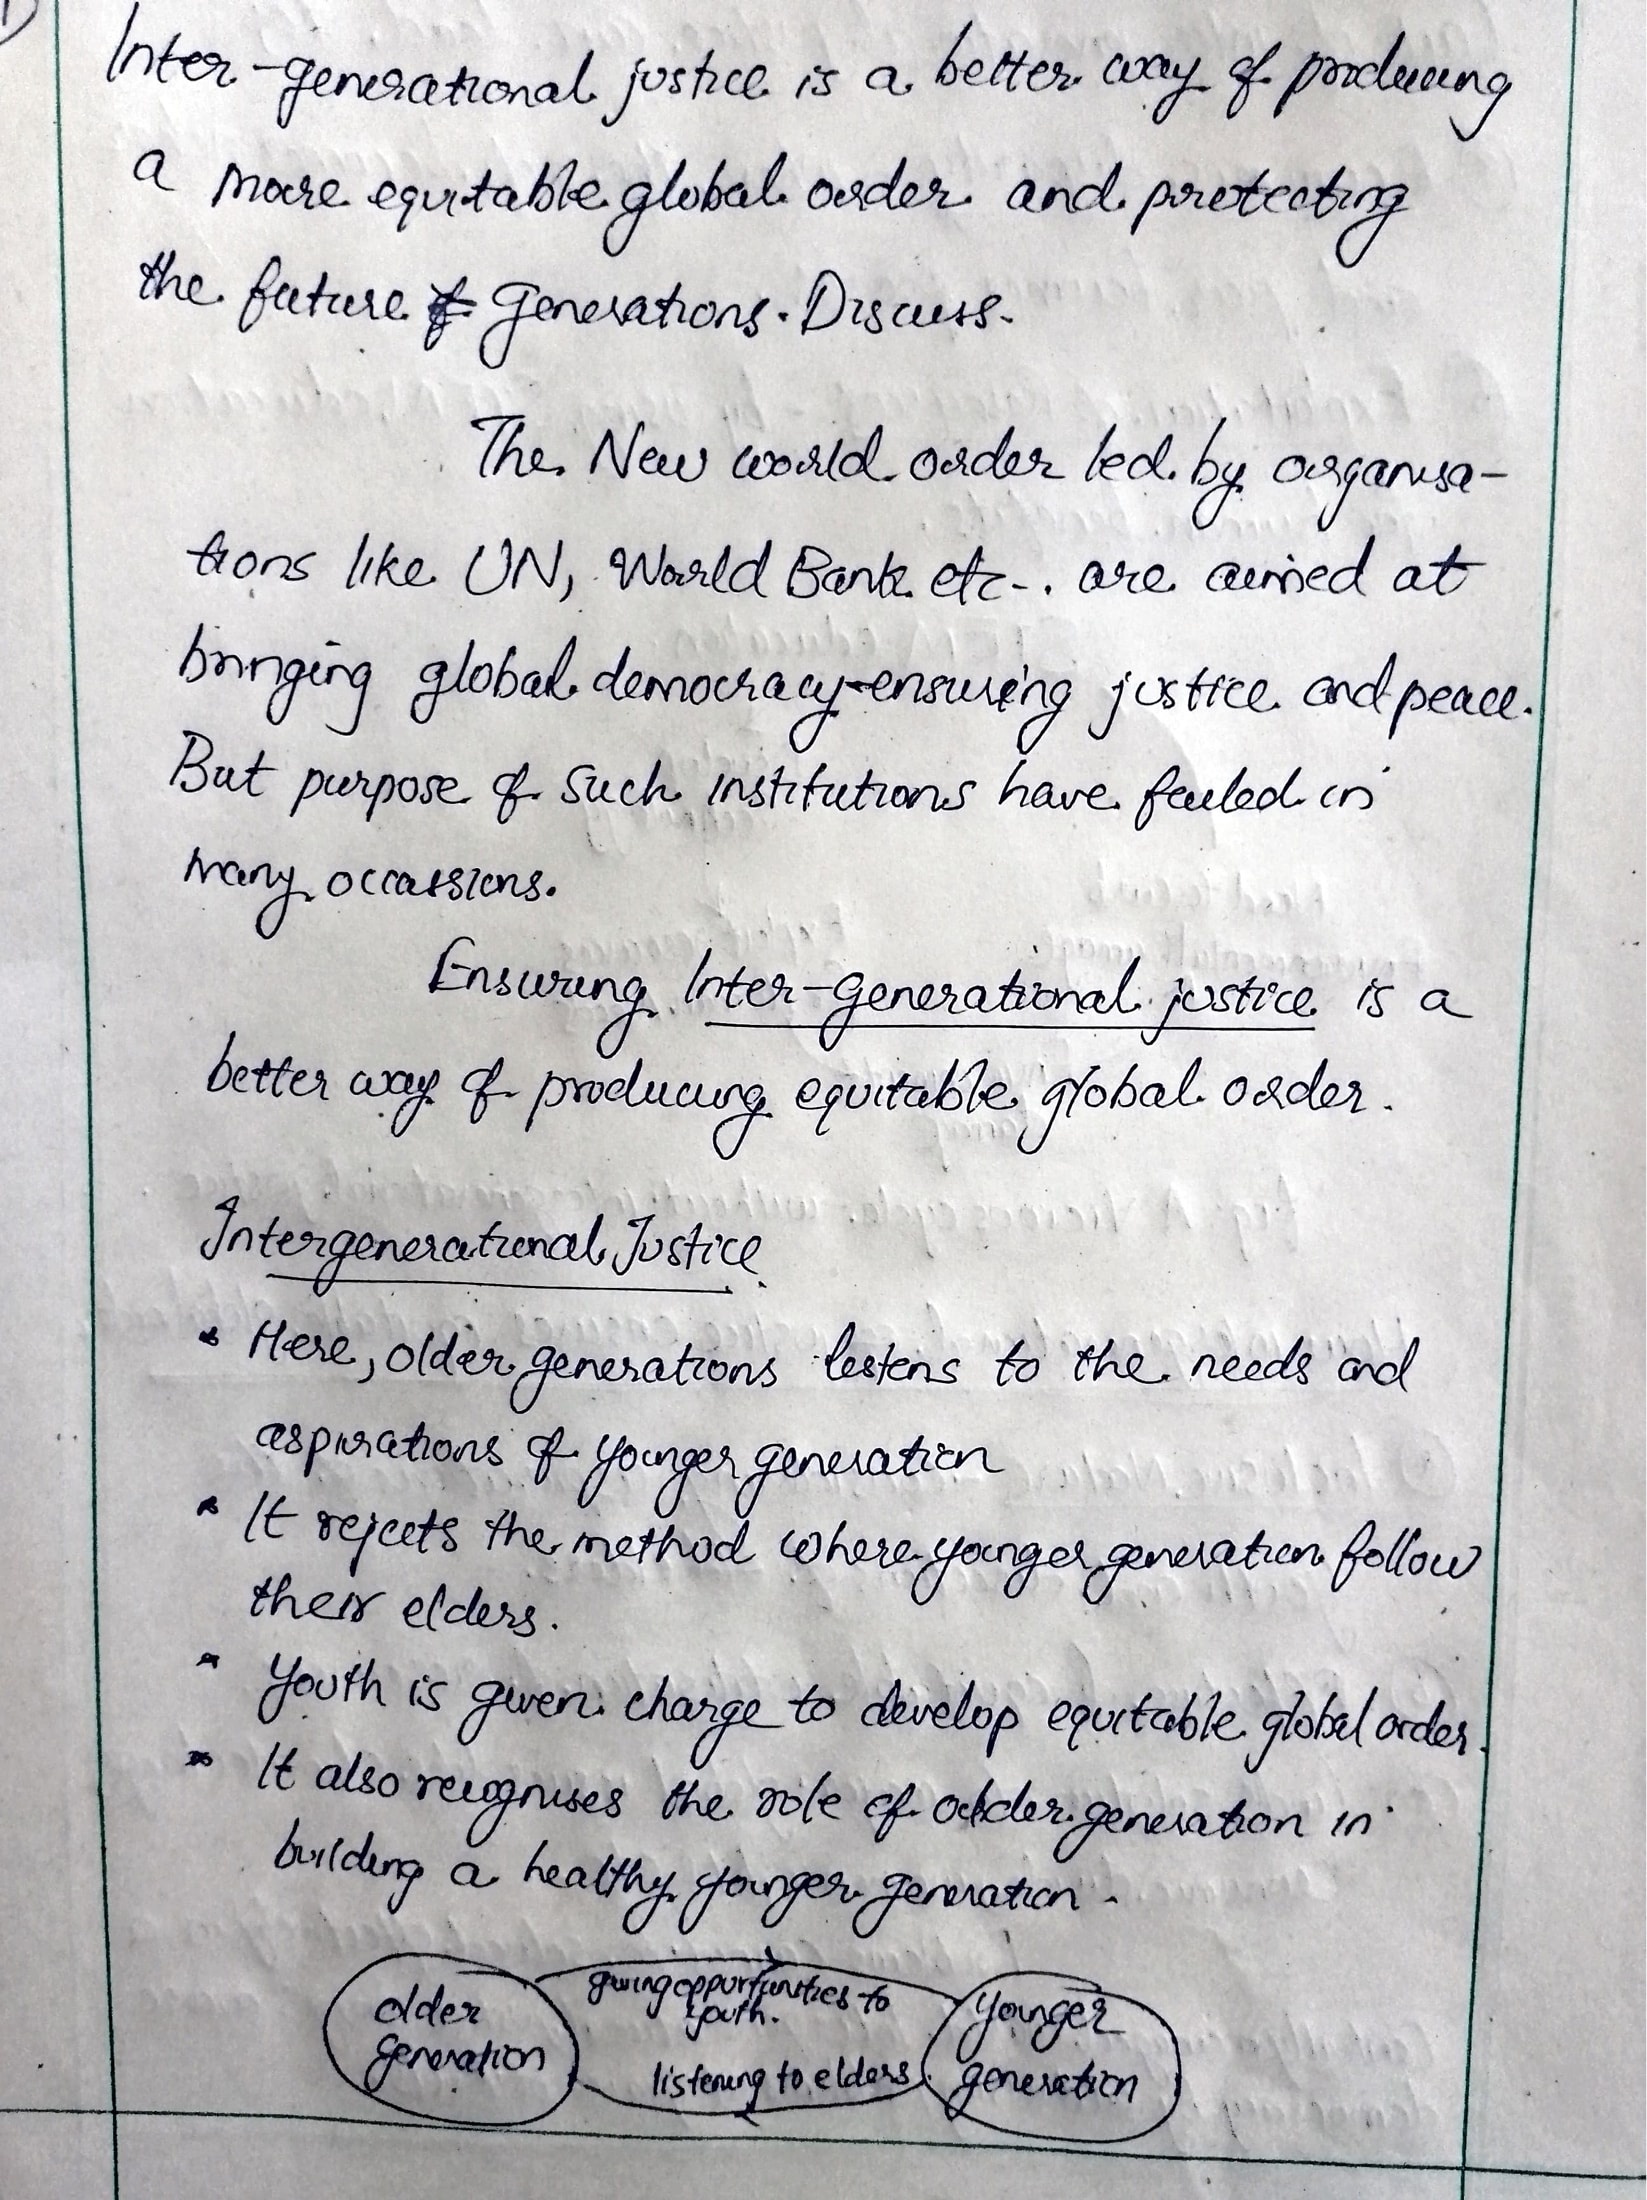 Inter-generational justice is a better way of producing
a more equitable global order and protecting
the future generations. Discuss.
The New world order led by organisa-
tions like UN, World Bank etc-. are aimed at
bringing global democracy ensuring justice and peace.
But purpose of such institutions have failed in
many occassions.
Ensuring Inter-generational justice is a
better way of producing equitable global order.
Intergenerational Justice
* Here, older generations listens to the needs and
aspirations of younger generation
* It rejects the method where younger generation follow
their elders.
* Youth is given charge to develop equitable global order.
* It also recognises the role of older generation in
building a healthy younger generation.
older
generation
giving opportunities to
youth.
listening to elders
younger
generation